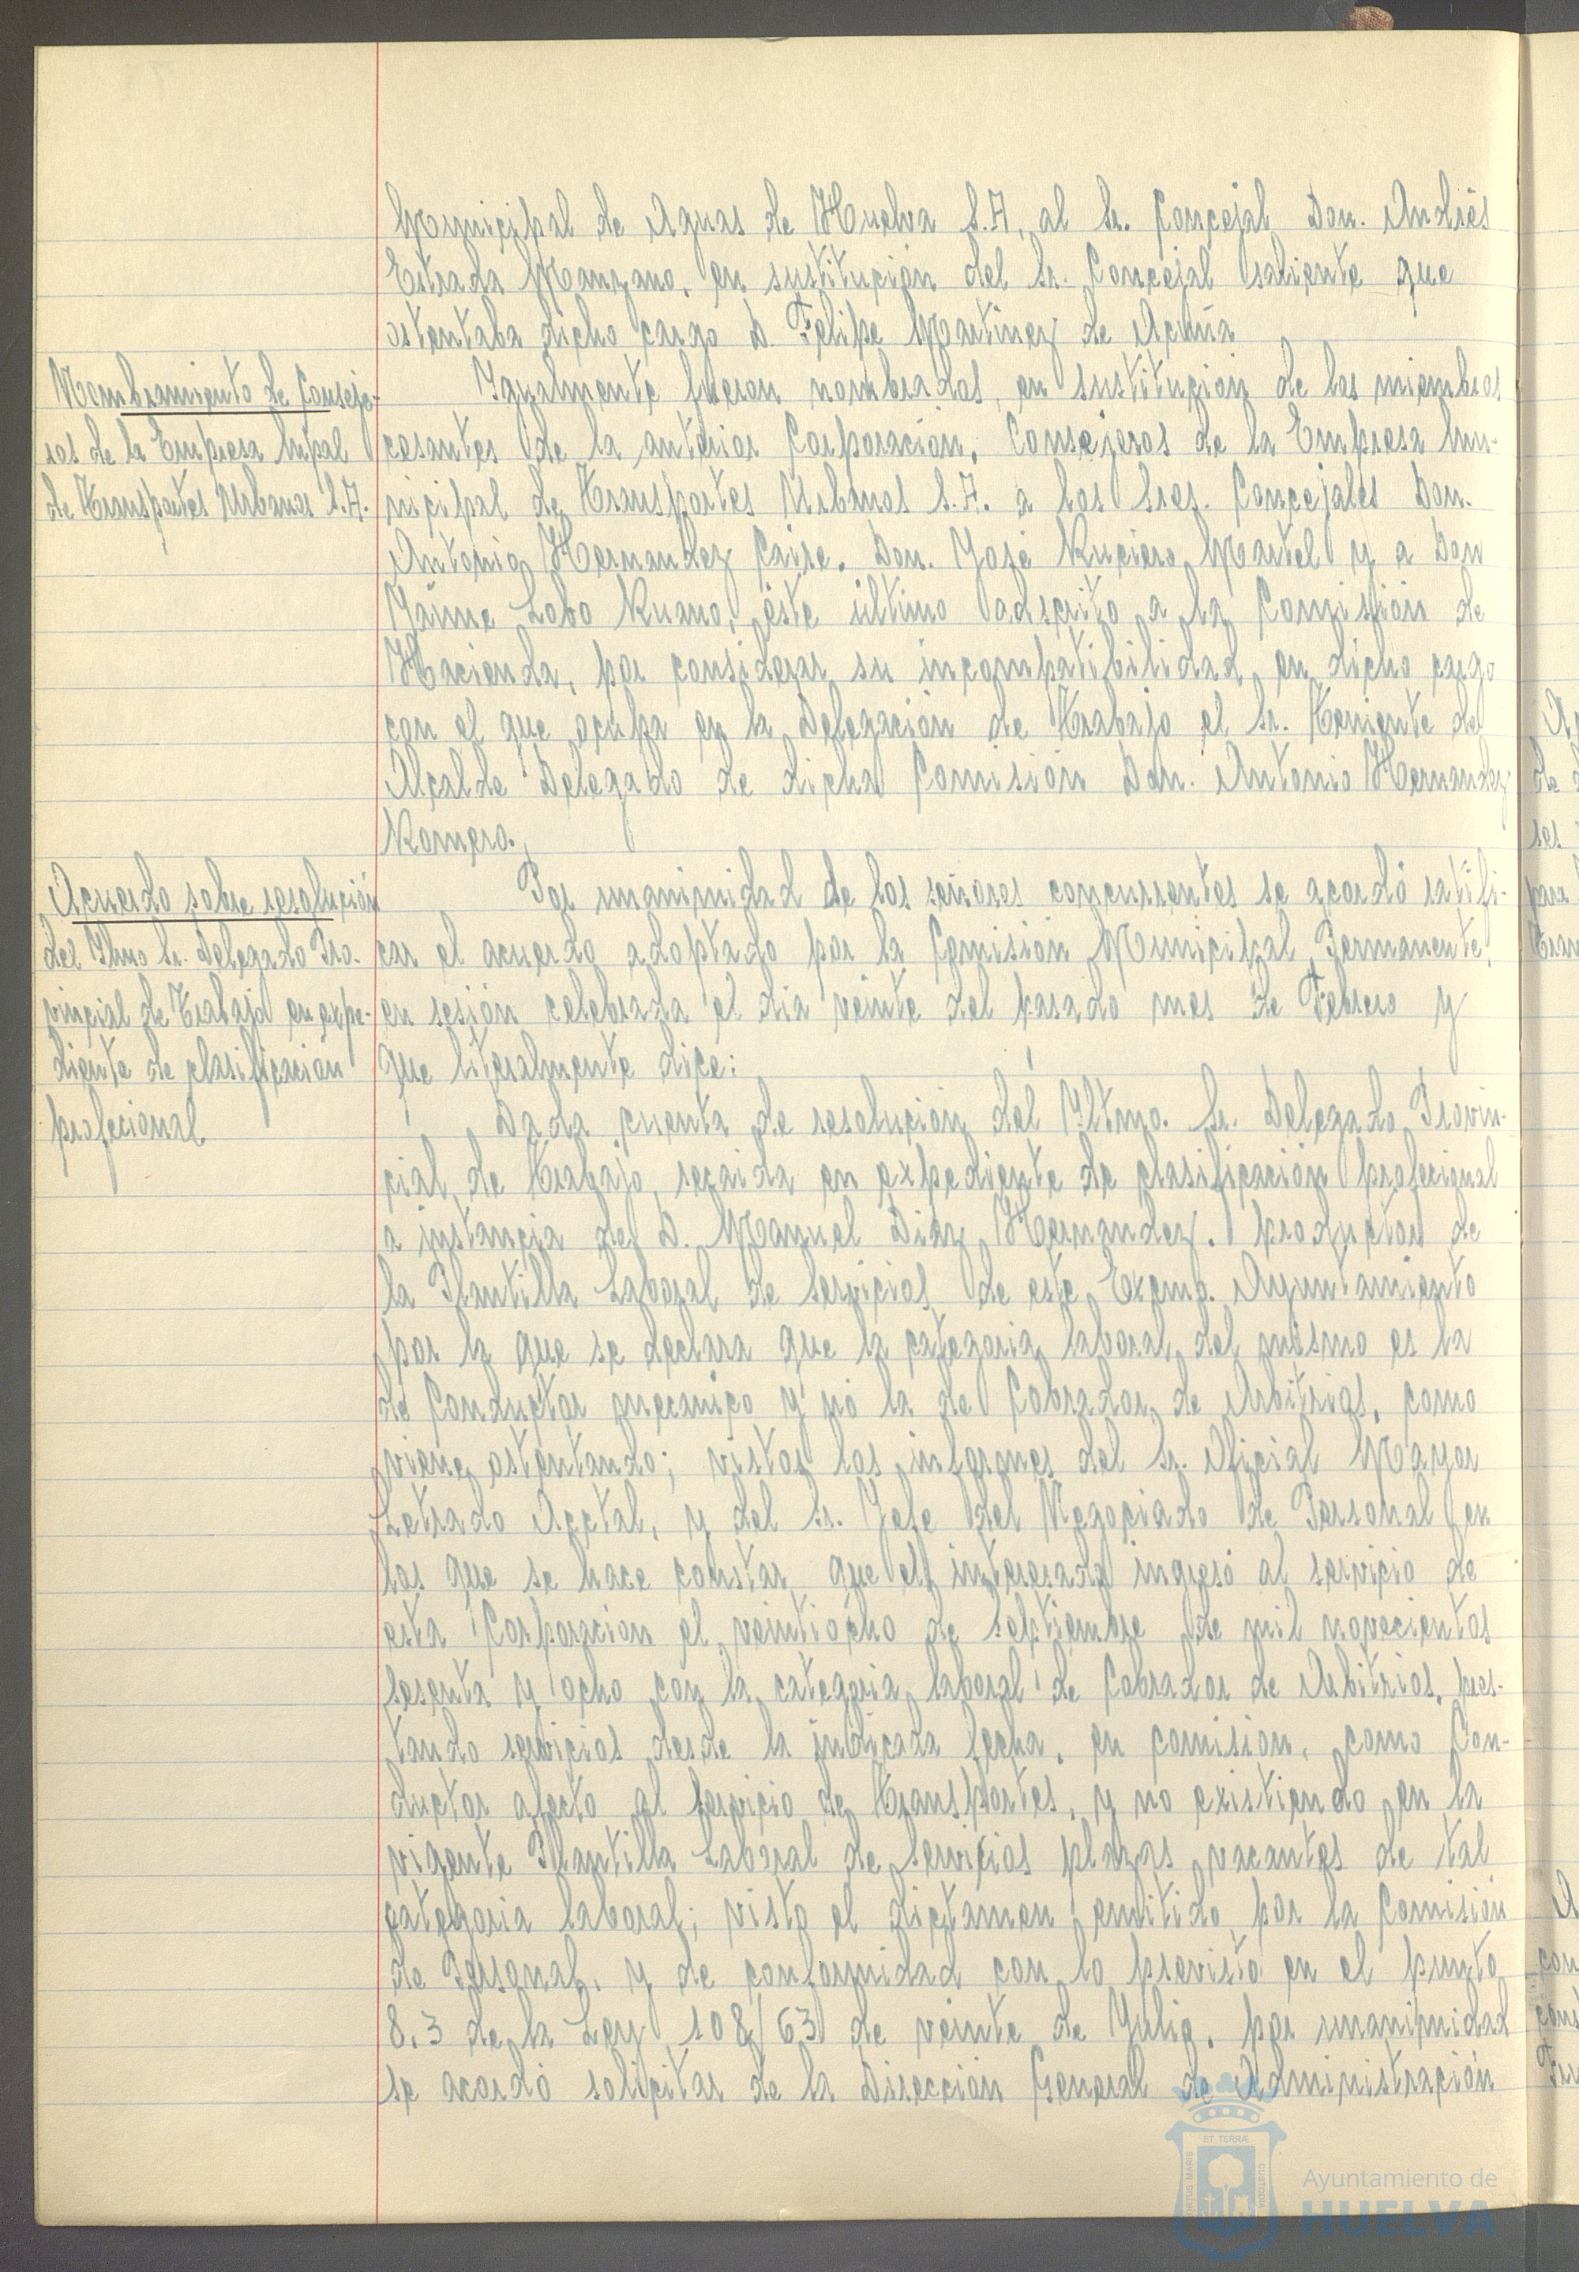 Municipal de Aguas de Huelva S.A, al Sr. Concejal Don. Andrés
Estrada Manzano, en sustitución del Sr. Concejal saliente que
ostentaba dicho cargo D. Felipe Martínez de Acuña
Nombramiento de Conseje-
ros de la Empresa Mpal
de Transportes Urbanos S.A.
Igualmente fueron nombrados, en sustitución de los miembros
cesantes de la anterior Corporación, Consejeros de la Empresa Mu-
nicipal de Transportes Urbanos S.A. a los Sres. Concejales Don.
Antonio Hernandez Caire, Don. José Ruciero Martel y a Don
Jaime Lobo Ruano, éste último adscrito a la Comisión de
Hacienda, por considerar su incompatibilidad en dicho cargo
con el que ocupa en la Delegación de Trabajo el Sr. Teniente de
Alcalde Delegado de dicha Comisión Don. Antonio Hernandez
Romero.
Acuerdo sobre resolución
del Iltmo Sr. Delegado Pro-
vincial de Trabajo en expe-
diente de clasificación
profecional
Por unanimidad de los señores concurrentes se acordó ratifi-
car el acuerdo adoptado por la Comisión Municipal Permanente,
en sesión celebrada el dia veinte del pasado mes de Febrero y
que literalmente dice:
Dada cuenta de resolución del Iltmo. Sr. Delegado Provin-
cial de Trabajo, recaida en expediente de clasificación profecional
a instancia de D. Manuel Diaz Hernandez, productor de
la Plantilla Laboral de Servicios de este Excmo. Ayuntamiento
por la que se declara que la categoria laboral del mismo es la
de Conductor mecanico y no la de Cobrador de Arbitrios, como
viene ostentando; vistos los informes del Sr. Oficial Mayor
Letrado Acctal, y del Sr. Jefe del Negociado de Personal en
los que se hace constar que el interesado ingresó al servicio de
esta Corporación el veintiocho de Septiembre de mil novecientos
sesenta y ocho con la categoria laboral de Cobrador de Arbitrios, pres-
tando servicios desde la indicada fecha, en comisión, como Con-
ductor afecto al Servicio de Transportes, y no existiendo en la
vigente Plantilla Laboral de Servicios plazas vacantes de tal
categoria laboral; visto el dictamen emitido por la Comisión
de Personal, y de conformidad con lo previsto en el punto
8.3 de la Ley 108/63 de veinte de Julio, por unanimidad
se acordó solicitar de la Dirección General de Administración
Ayuntamiento de
HUELVA